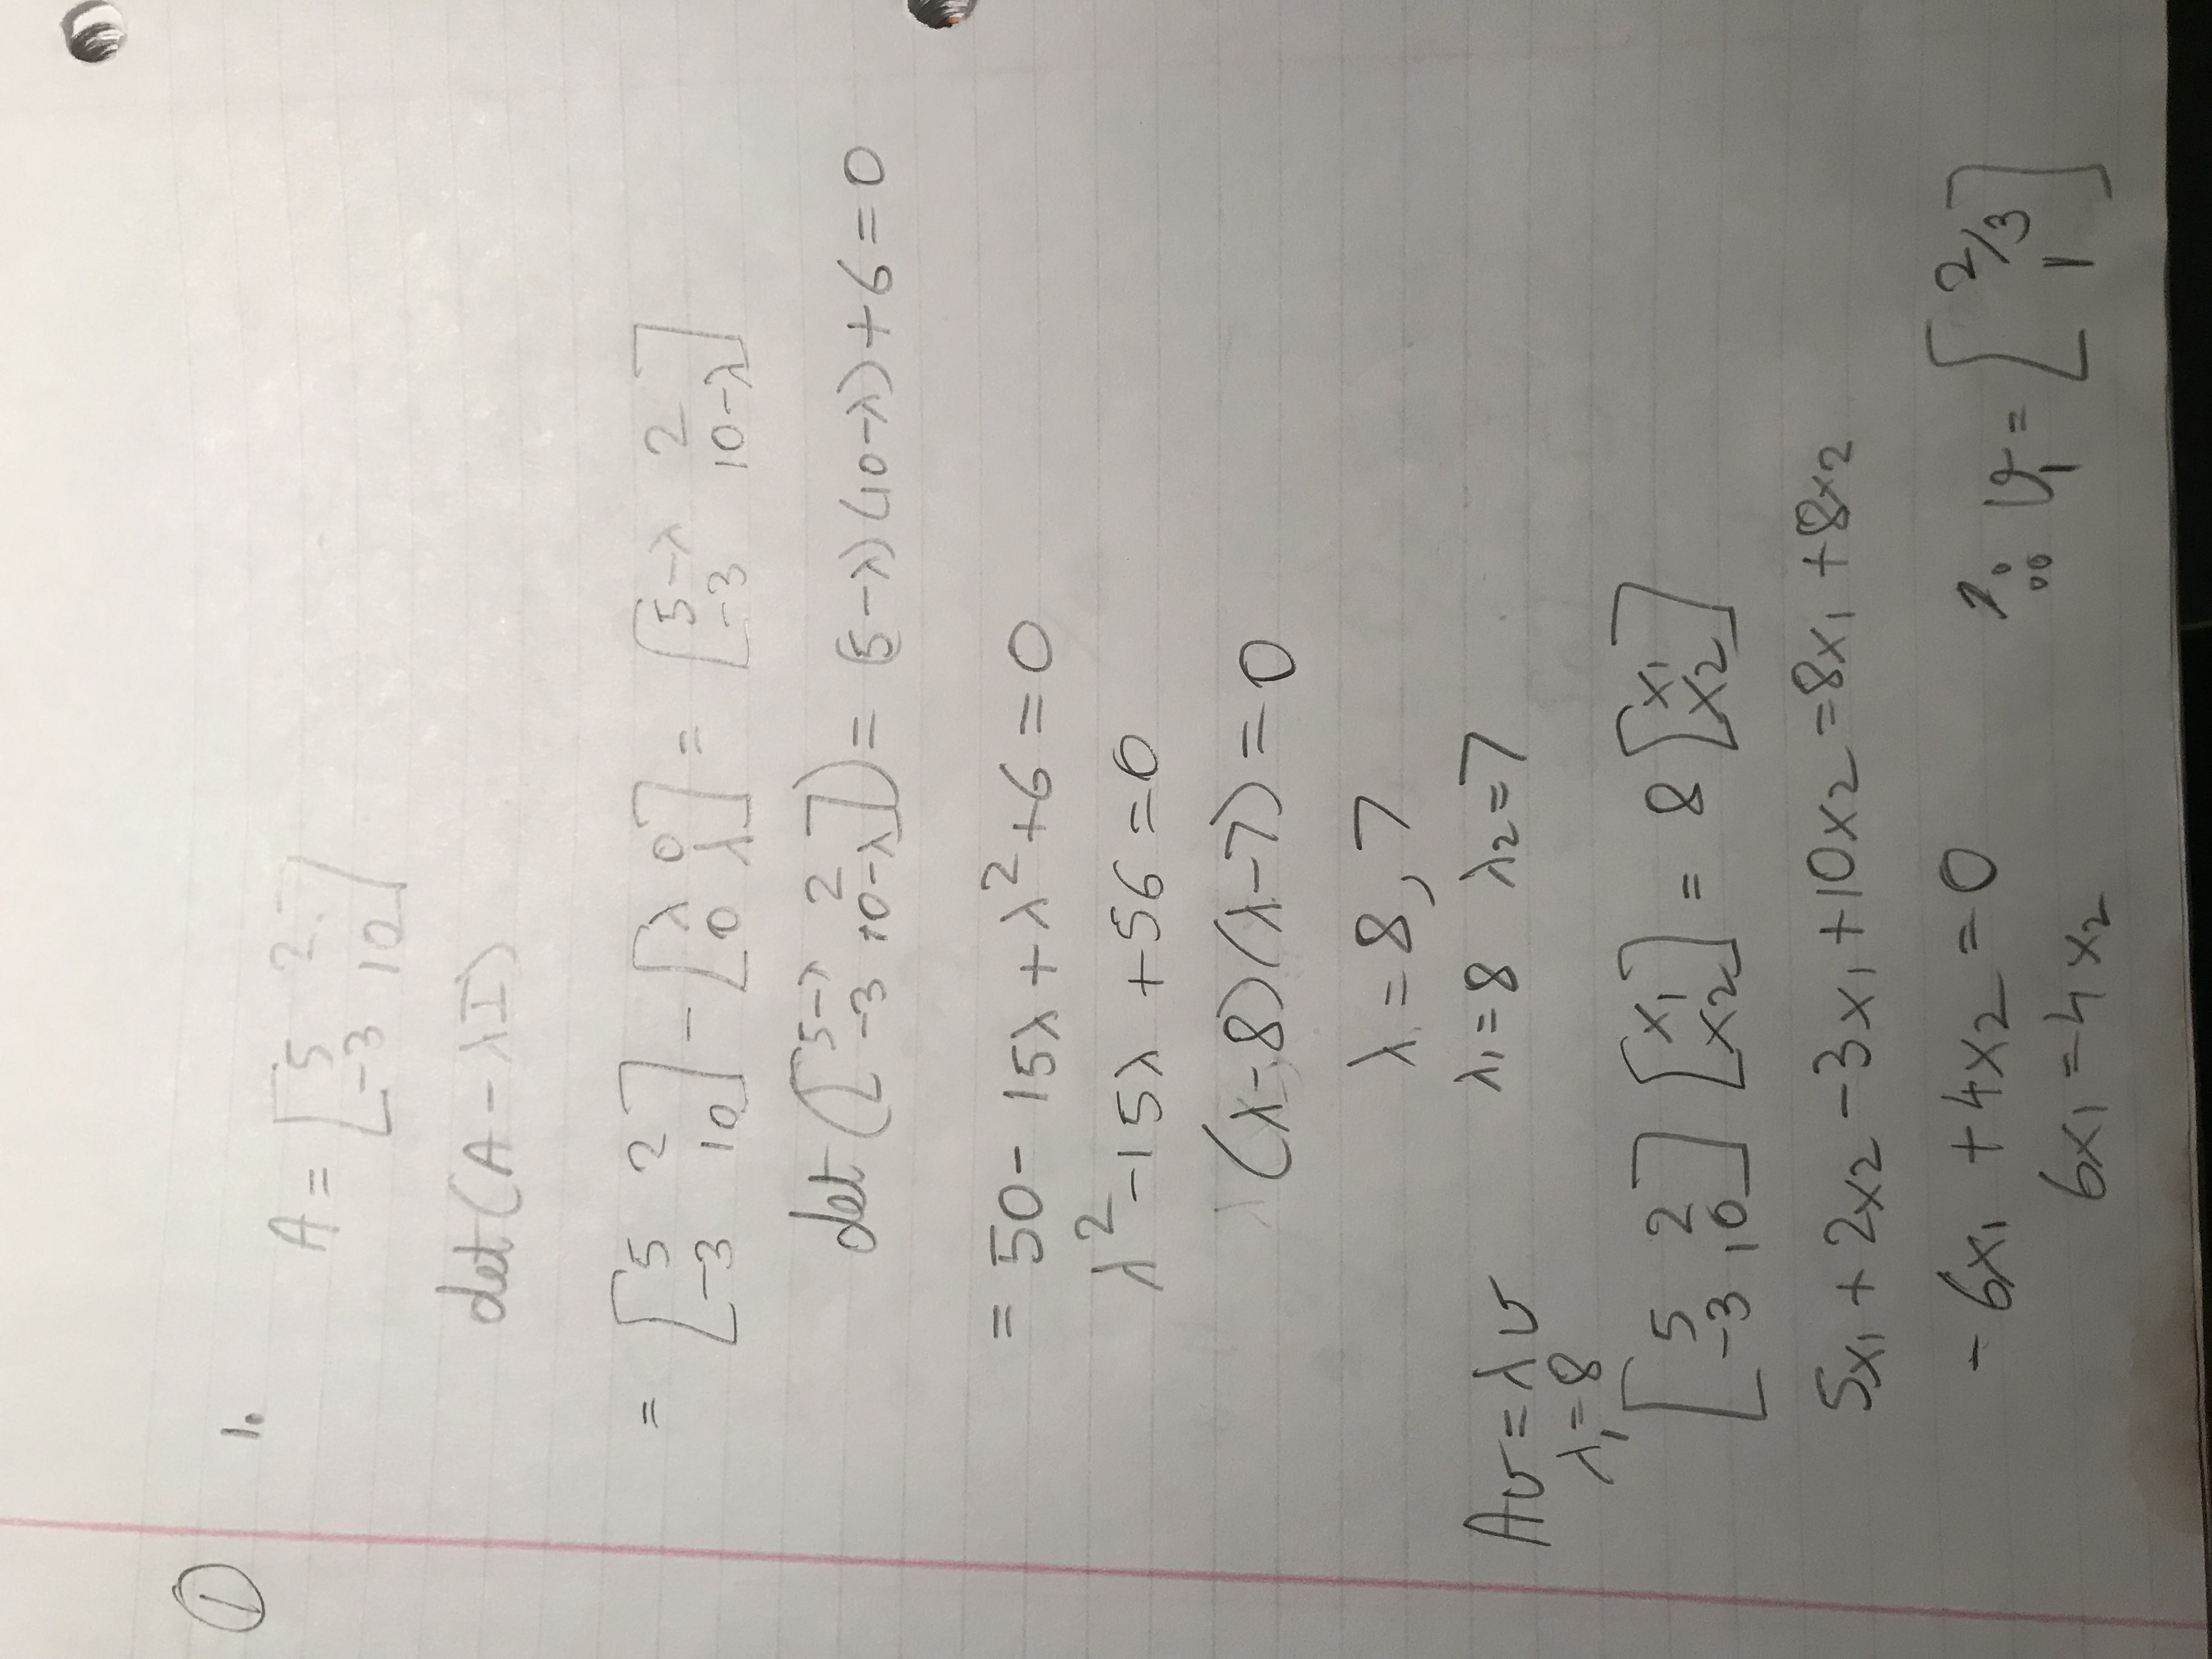 ① 1.
A = [5 2
-3 10]
det(A - λI)
= [5 2
-3 10] - [λ 0
0 λ] = [5-λ 2
-3 10-λ]
det([5-λ 2
-3 10-λ]) = (5-λ)(10-λ)+6=0
= 50 - 15λ + λ² + 6 = 0
λ² - 15λ + 56 = 0
(λ-8)(λ-7) = 0
λ = 8, 7
λ₁=8 λ₂=7
Av = λv
λ₁=8
[5 2
-3 10] [x₁
x₂] = 8 [x₁
x₂]
5x₁ + 2x₂ - 3x₁ + 10x₂ = 8x₁ + 8x₂
-6x₁ + 4x₂ = 0
6x₁ = 4x₂
∴ v₁ = [2/3
1]